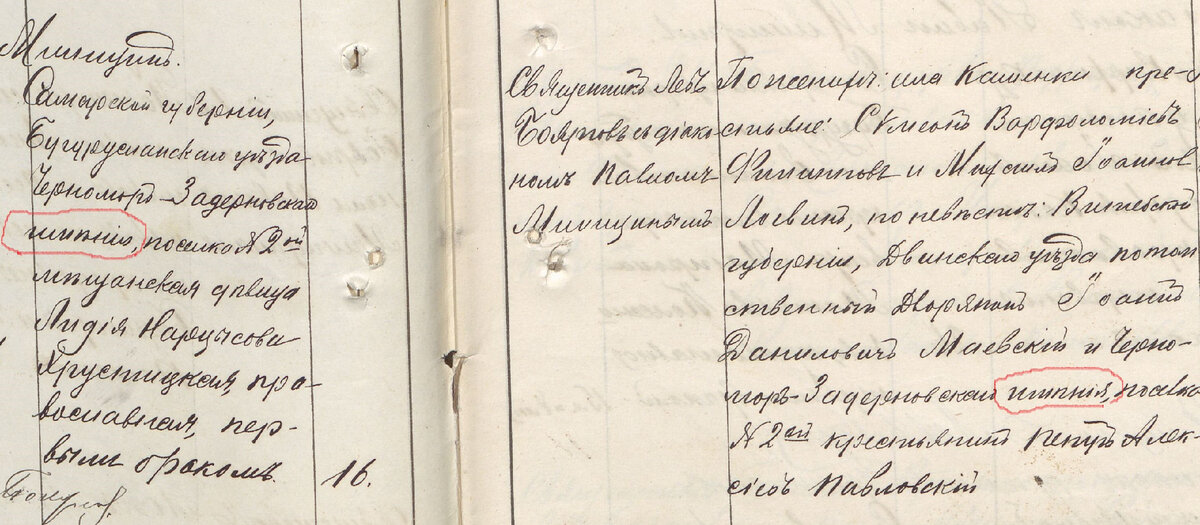 Минусинъ.
Самарской губернiи,
Бугурусланскаго уѣзда
Черноморъ-Задерновскаго
имѣнiя, поселка N 2ой
мѣщанская дѣвица
Лидiя Нарцысова
Хрустицкая, пра-
вославная, пер-
вымъ бракомъ.
16.
Священникъ Левъ
Бояровъ съ дiако-
номъ Павломъ
Милицинымъ
По женихѣ: села Каменки кре-
стьяне: Сѵмеонъ Варѳоломiевъ
Филипповъ и Мирскiй Iоанновъ
Логвинъ, по невѣстѣ: Витебской
губернiи, Двинскаго уѣзда потом-
ственный Дворянинъ Iоаннъ
Даниловичъ Маевскiй и Черно-
моръ-Задерновскаго имѣнiя, поселка
N 2ой крестьянинъ Петръ Алек-
сѣевъ Павловскiй